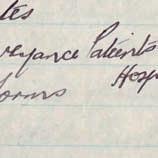 tes
veyance Patients
Hosp
ooms